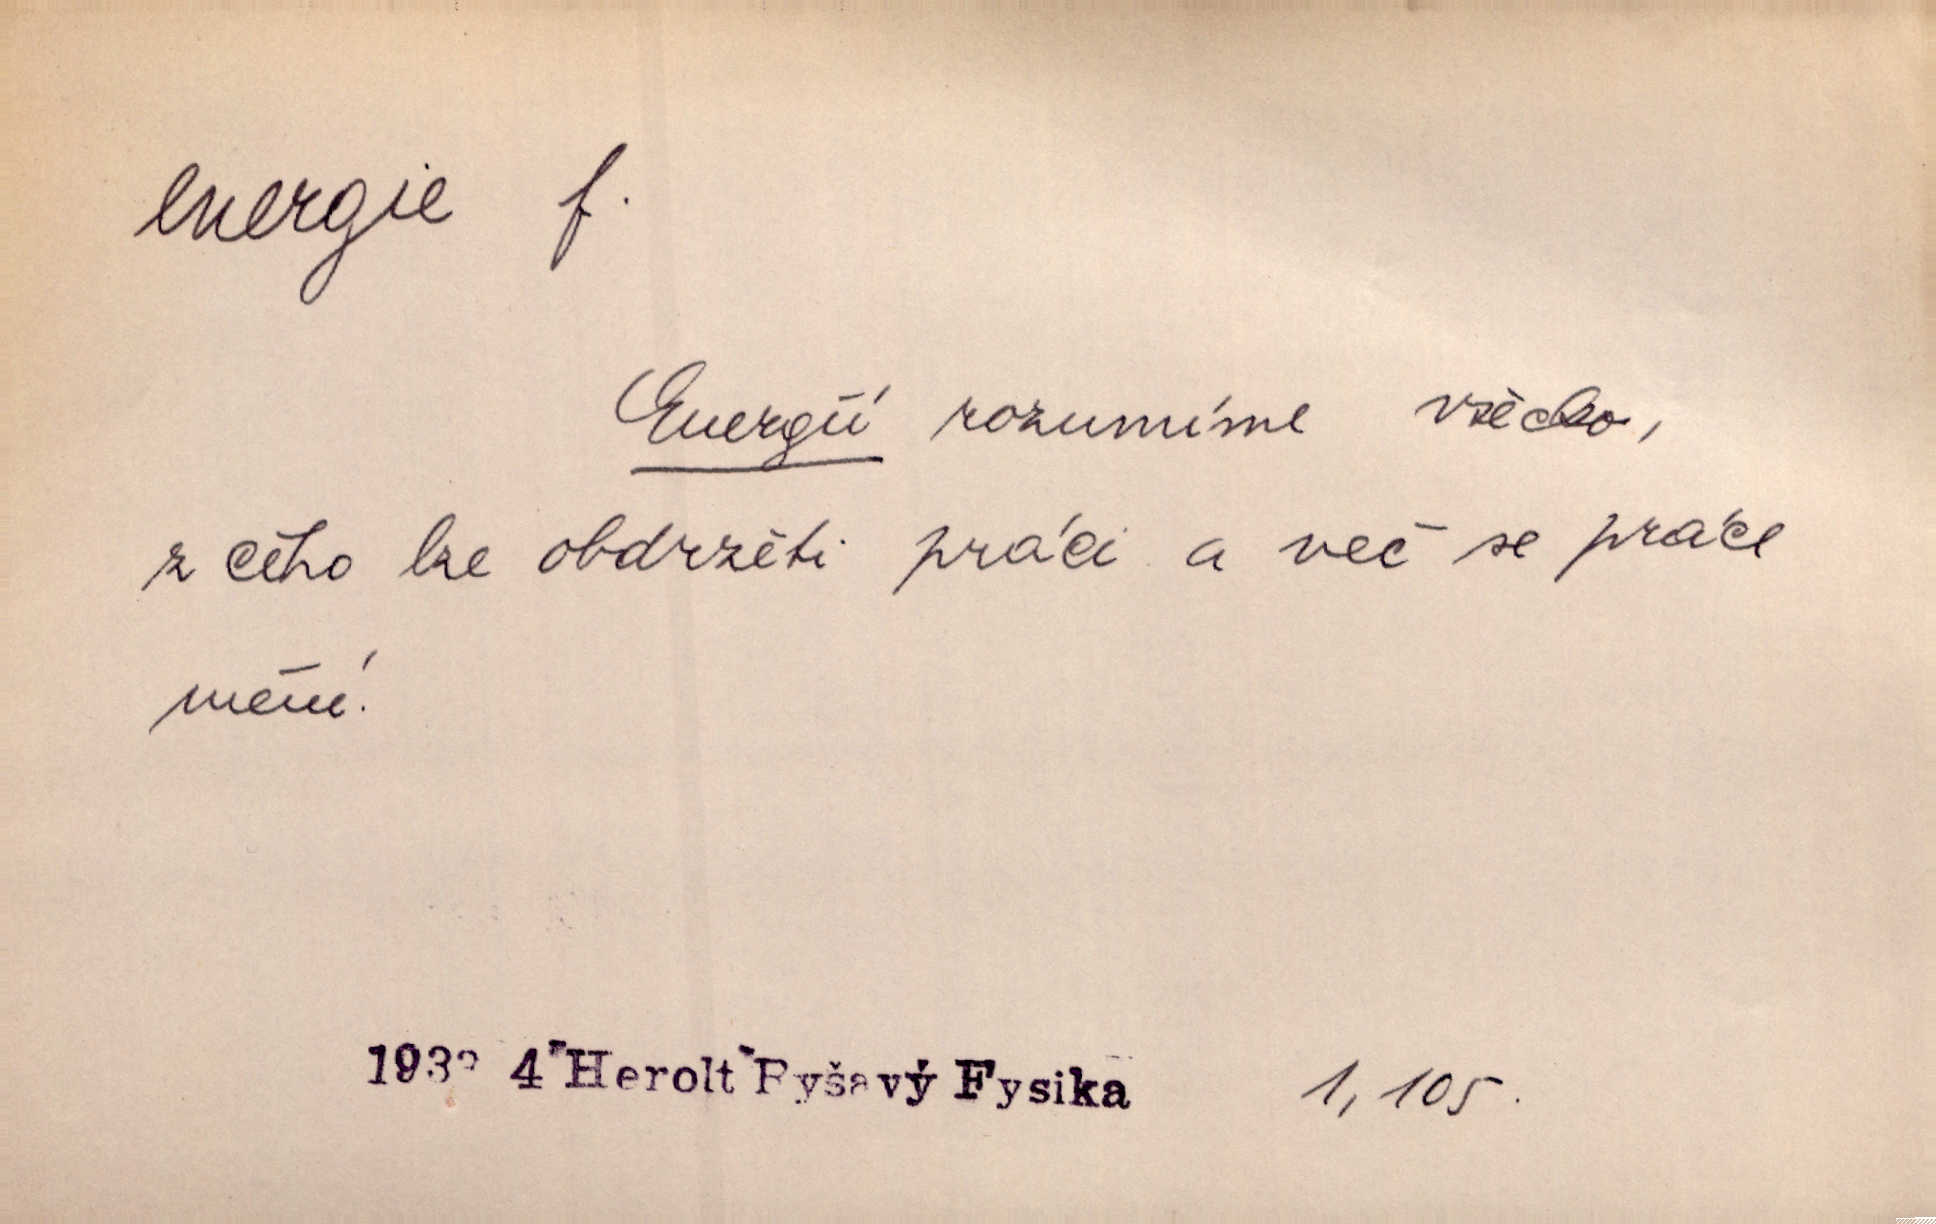 energie f.
Energií rozumíme všecko,
z čeho lze obdržeti práci a več se práce
mění.
4 Herolt Ryšavý Fysika 1, 105.